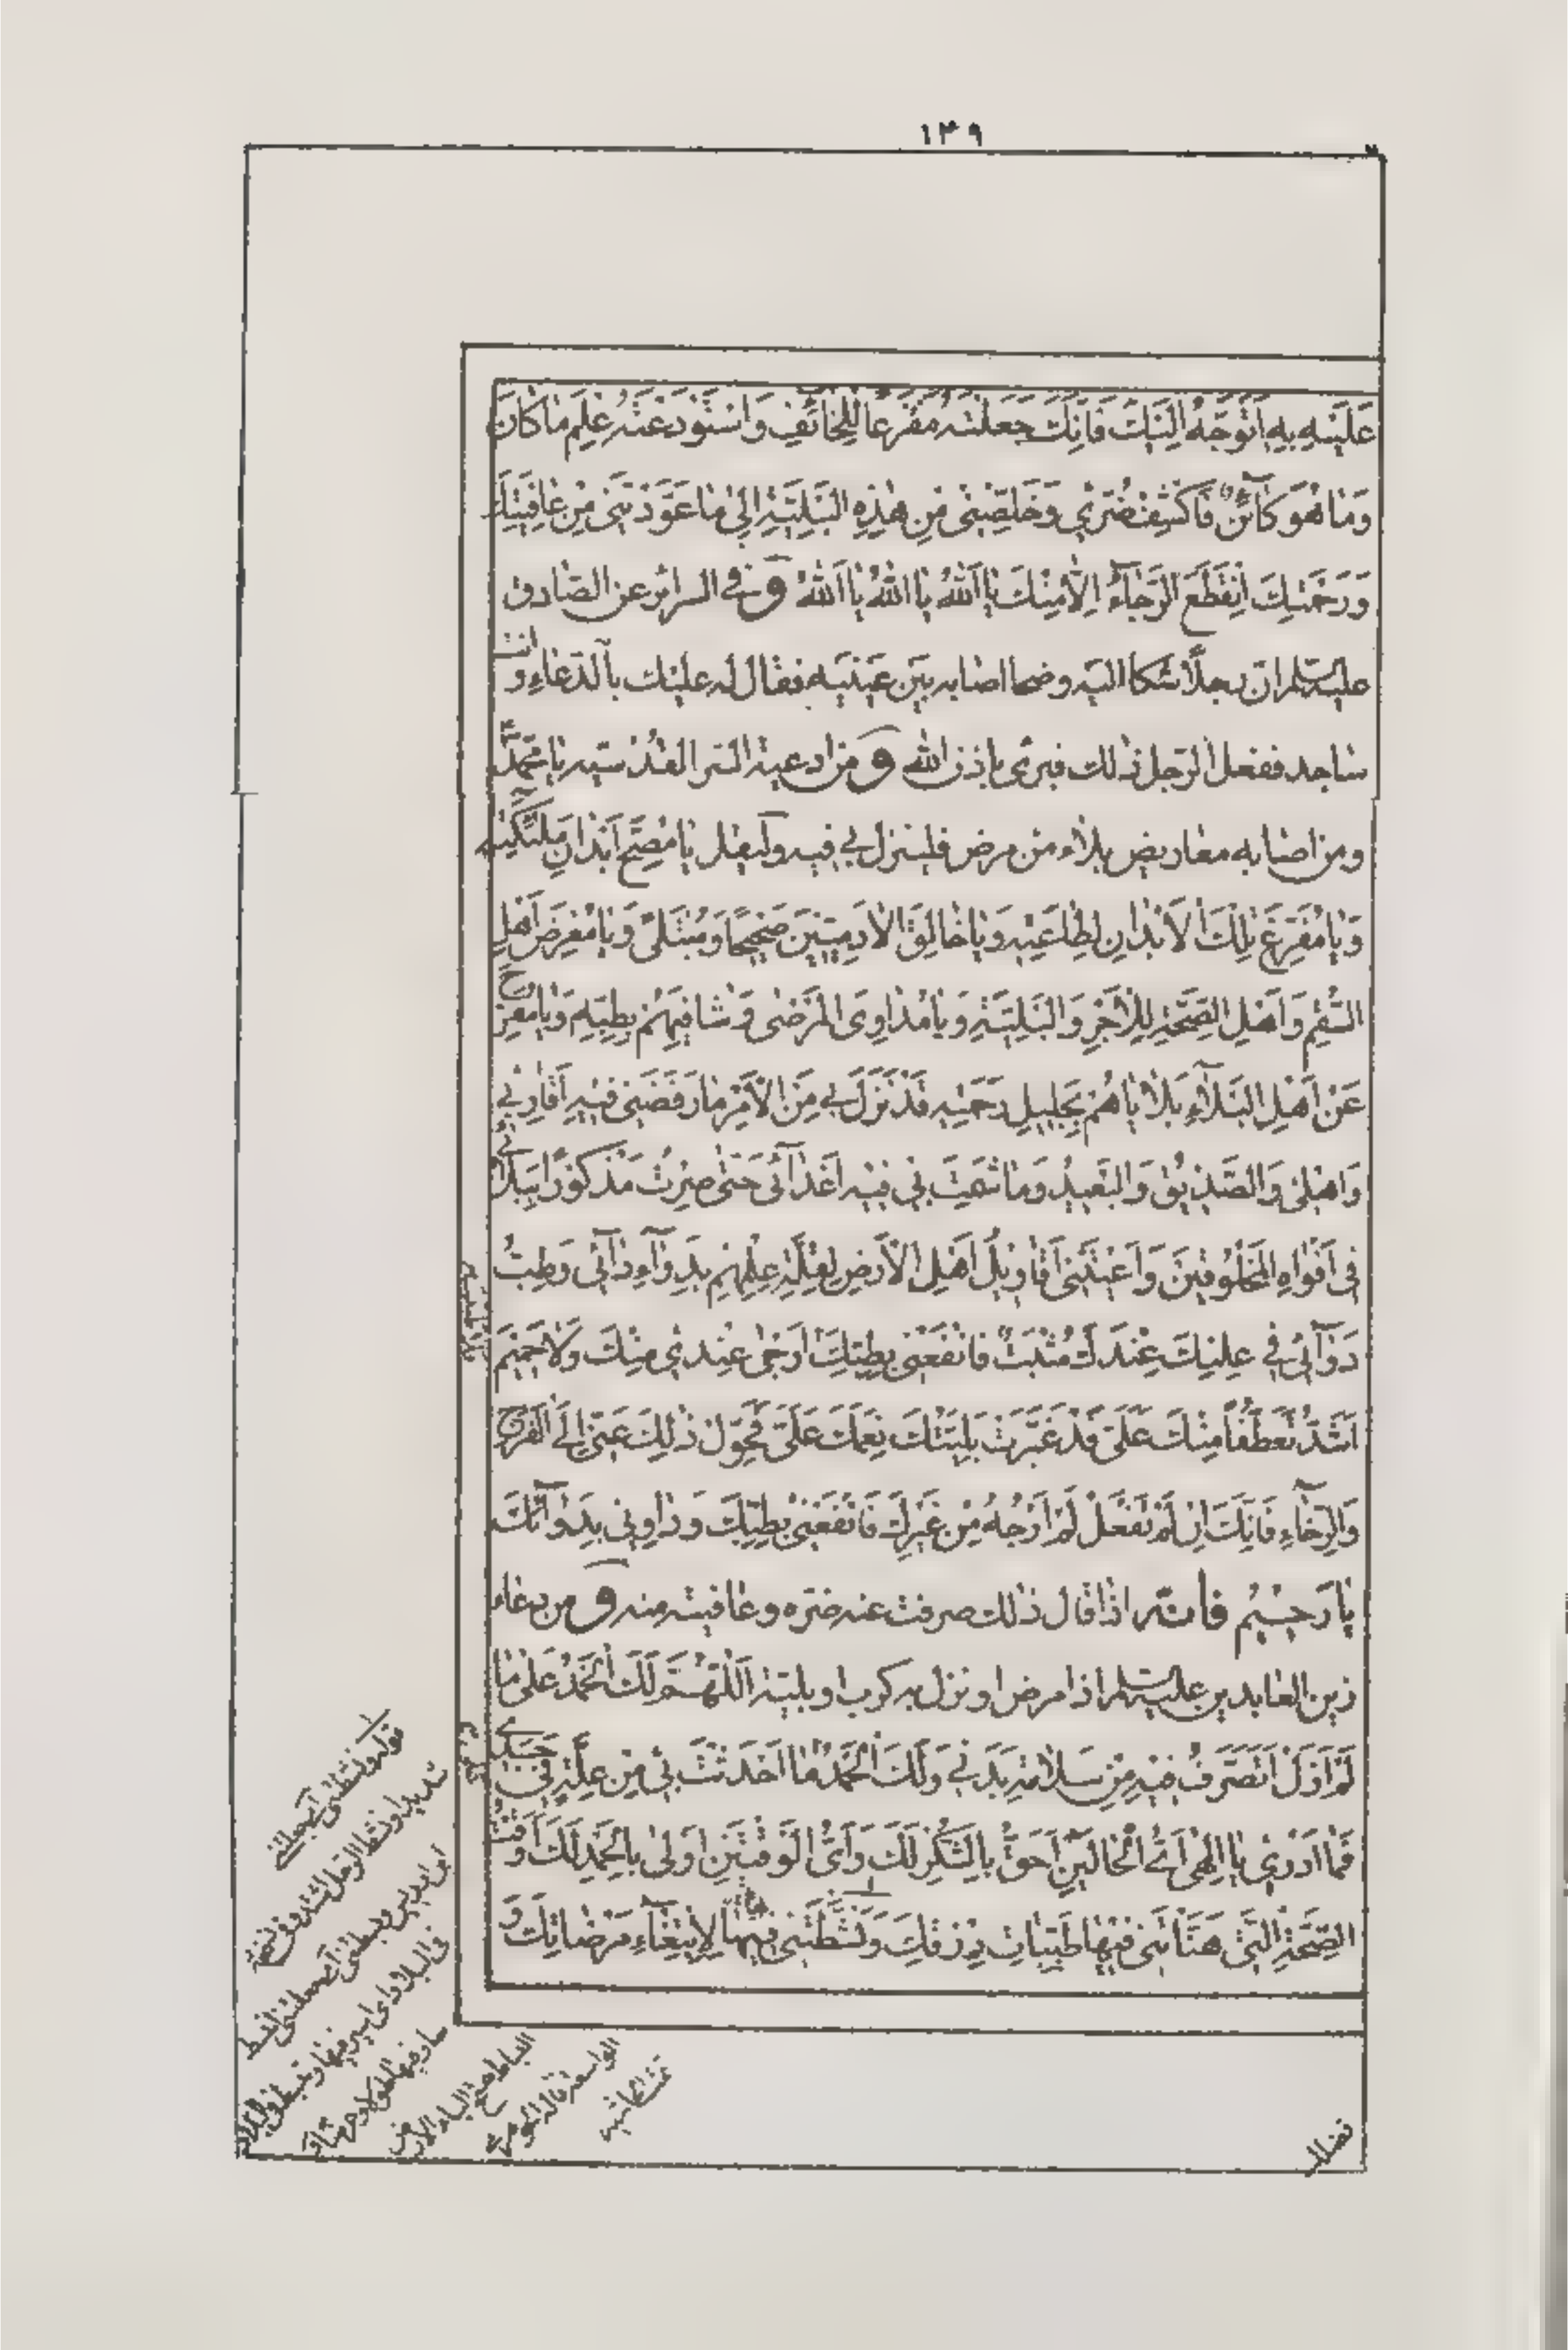 ١٣٩
عَلَيْهِ بِهِ اَتَوَجَّهُ اِلَيْكَ فَاِنَّكَ جَعَلْتَهُ مَفْزَعًا لِلْخائِفِ وَاسْتَوْدَعْتَهُ عِلْمَ ما كانَ
وَما هُوَ كائِنٌ فَاكْشِفْ ضُرّى وَخَلِّصْنى مِنْ هٰذِهِ الْبَلِيَّةِ اِلىٰ ما عَوَّدْتَنى مِنْ عافِيَتِكَ
وَرَحْمَتِكَ اِنْقَطَعَ الرَّجاءُ اِلّا مِنْكَ يا اَللهُ يا اَللهُ يا اَللهُ وفى السرائر عن الصّادق
عليه السلم ان رجلًا شكا اليه وضحا اصابه بين عينيه فقال له عليك بالدّعاء وانت
ساجد ففعل الرّجل ذلك فبرئ باذن الله ومن ادعية السر القدسيه يا محمّد
ومن اصابه معاريض بلاء من مرض فلينزل بى فيه وليقل يا مُصِحَّ اَبْدانِ مَلٰئِكَتِهِ
وَيا مُفَرِّغَ تِلْكَ الْاَبْدانِ لِطاعَتِهِ وَيا خالِقَ الْادَمِيّينَ صَحيحًا وَمُبْتَلىً وَيا مُعَرِّضَ اَهْلِ
السُّقْمِ وَاَهْلِ الصِّحَّةِ لِلْاَجْرِ وَالْبَلِيَّةِ وَيا مُداوِىَ الْمَرْضىٰ وَشافِيَهُمْ بِطِبِّهِ وَيا مُفَرِّج
عَنْ اَهْلِ الْبَلاءِ بَلاياهُمْ بِجَليلِ رَحْمَتِهِ قَدْ نَزَلَ بى مِنَ الْاَمْرِ ما رَفَضَنى فيهِ اَقارِبى
وَاَهْلى وَالصَّديقُ وَالْبَعيدُ وَما شَمِتَ بى فيهِ اَعْدائى حَتّىٰ صِرْتُ مَذْكُورًا بِبَلائى
فى اَفْواهِ الْمَخْلُوقينَ وَاَعْيَتْنى اَقاويلُ اَهْلِ الْاَرْضِ لِقِلَّةِ عِلْمِهِمْ بِدَواءِ دائى وَطِبُّ
دَوائى فى عِلْمِكَ عِنْدَكَ مُثْبَتٌ فَانْفَعْنى بِطِبِّكَ اَرْجىٰ عِنْدى مِنْكَ وَلا حَميمَ
اَشَدُّ تَعَطُّفًا مِنْكَ عَلَىَّ قَدْ غَيَّرَتْ بَلِيَّتُكَ نِعَمَكَ عَلَىَّ فَحَوِّلْ ذٰلِكَ عَنّى اِلَى الْفَرَج
وَالرَّخاءِ فَاِنَّكَ اِنْ لَمْ تَفْعَلْ لَمْ اَرْجُهُ مِنْ غَيْرِكَ فَانْفَعْنى بِطِبِّكَ وَداوِنى بِدَوائِكَ
يا رَحيمُ فانّه اذا قال ذلك صرفت عنه ضرّه وعافيته منه ومن دعاء
زين العابدين عليه السلم اذا مرض او نزل به كرب او بلية اَللّٰهُمَّ لَكَ الْحَمْدُ عَلىٰ ما
لَمْ اَزَلْ اَتَصَرَّفُ فيهِ مِنْ سَلامَةِ بَدَنى وَلَكَ الْحَمْدُ ما اَحْدَثْتَ بى مِنْ عِلَّةٍ فى جَسَدى
فَما اَدْرى يا اِلٰهى اَىُّ الْحالَيْنِ اَحَقُّ بِالشُّكْرِ لَكَ وَاَىُّ الْوَقْتَيْنِ اَوْلىٰ بِالْحَمْدِ لَكَ اَوَقْتُ
الصِّحَّةِ الَّتى هَنَّأْتَنى فيها طَيِّباتِ رِزْقِكَ وَنَشَّطْتَنى فيها لِابْتِغاءِ مَرْضاتِكَ وَ
قوله ونشطنى اى جعلنى
الواسعة قاله الجوهرى
فضلك